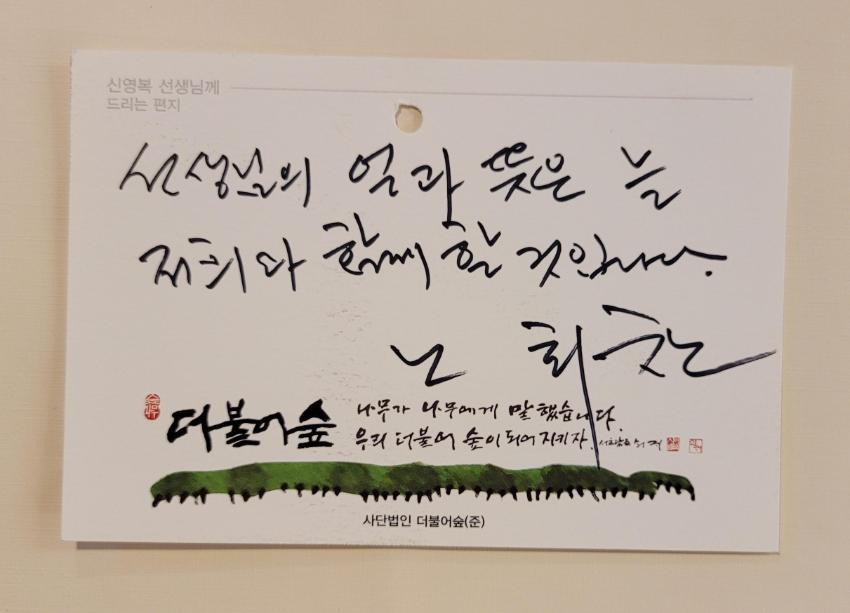 신영복 선생님께
드리는 편지
선생님의 얼과 뜻은 늘
저희와 함께 할 것입니다.
노 회찬
더불어숲
나무가 나무에게 말했습니다.
우리 더불어 숲이 되어 지키자.
사단법인 더불어숲(준)